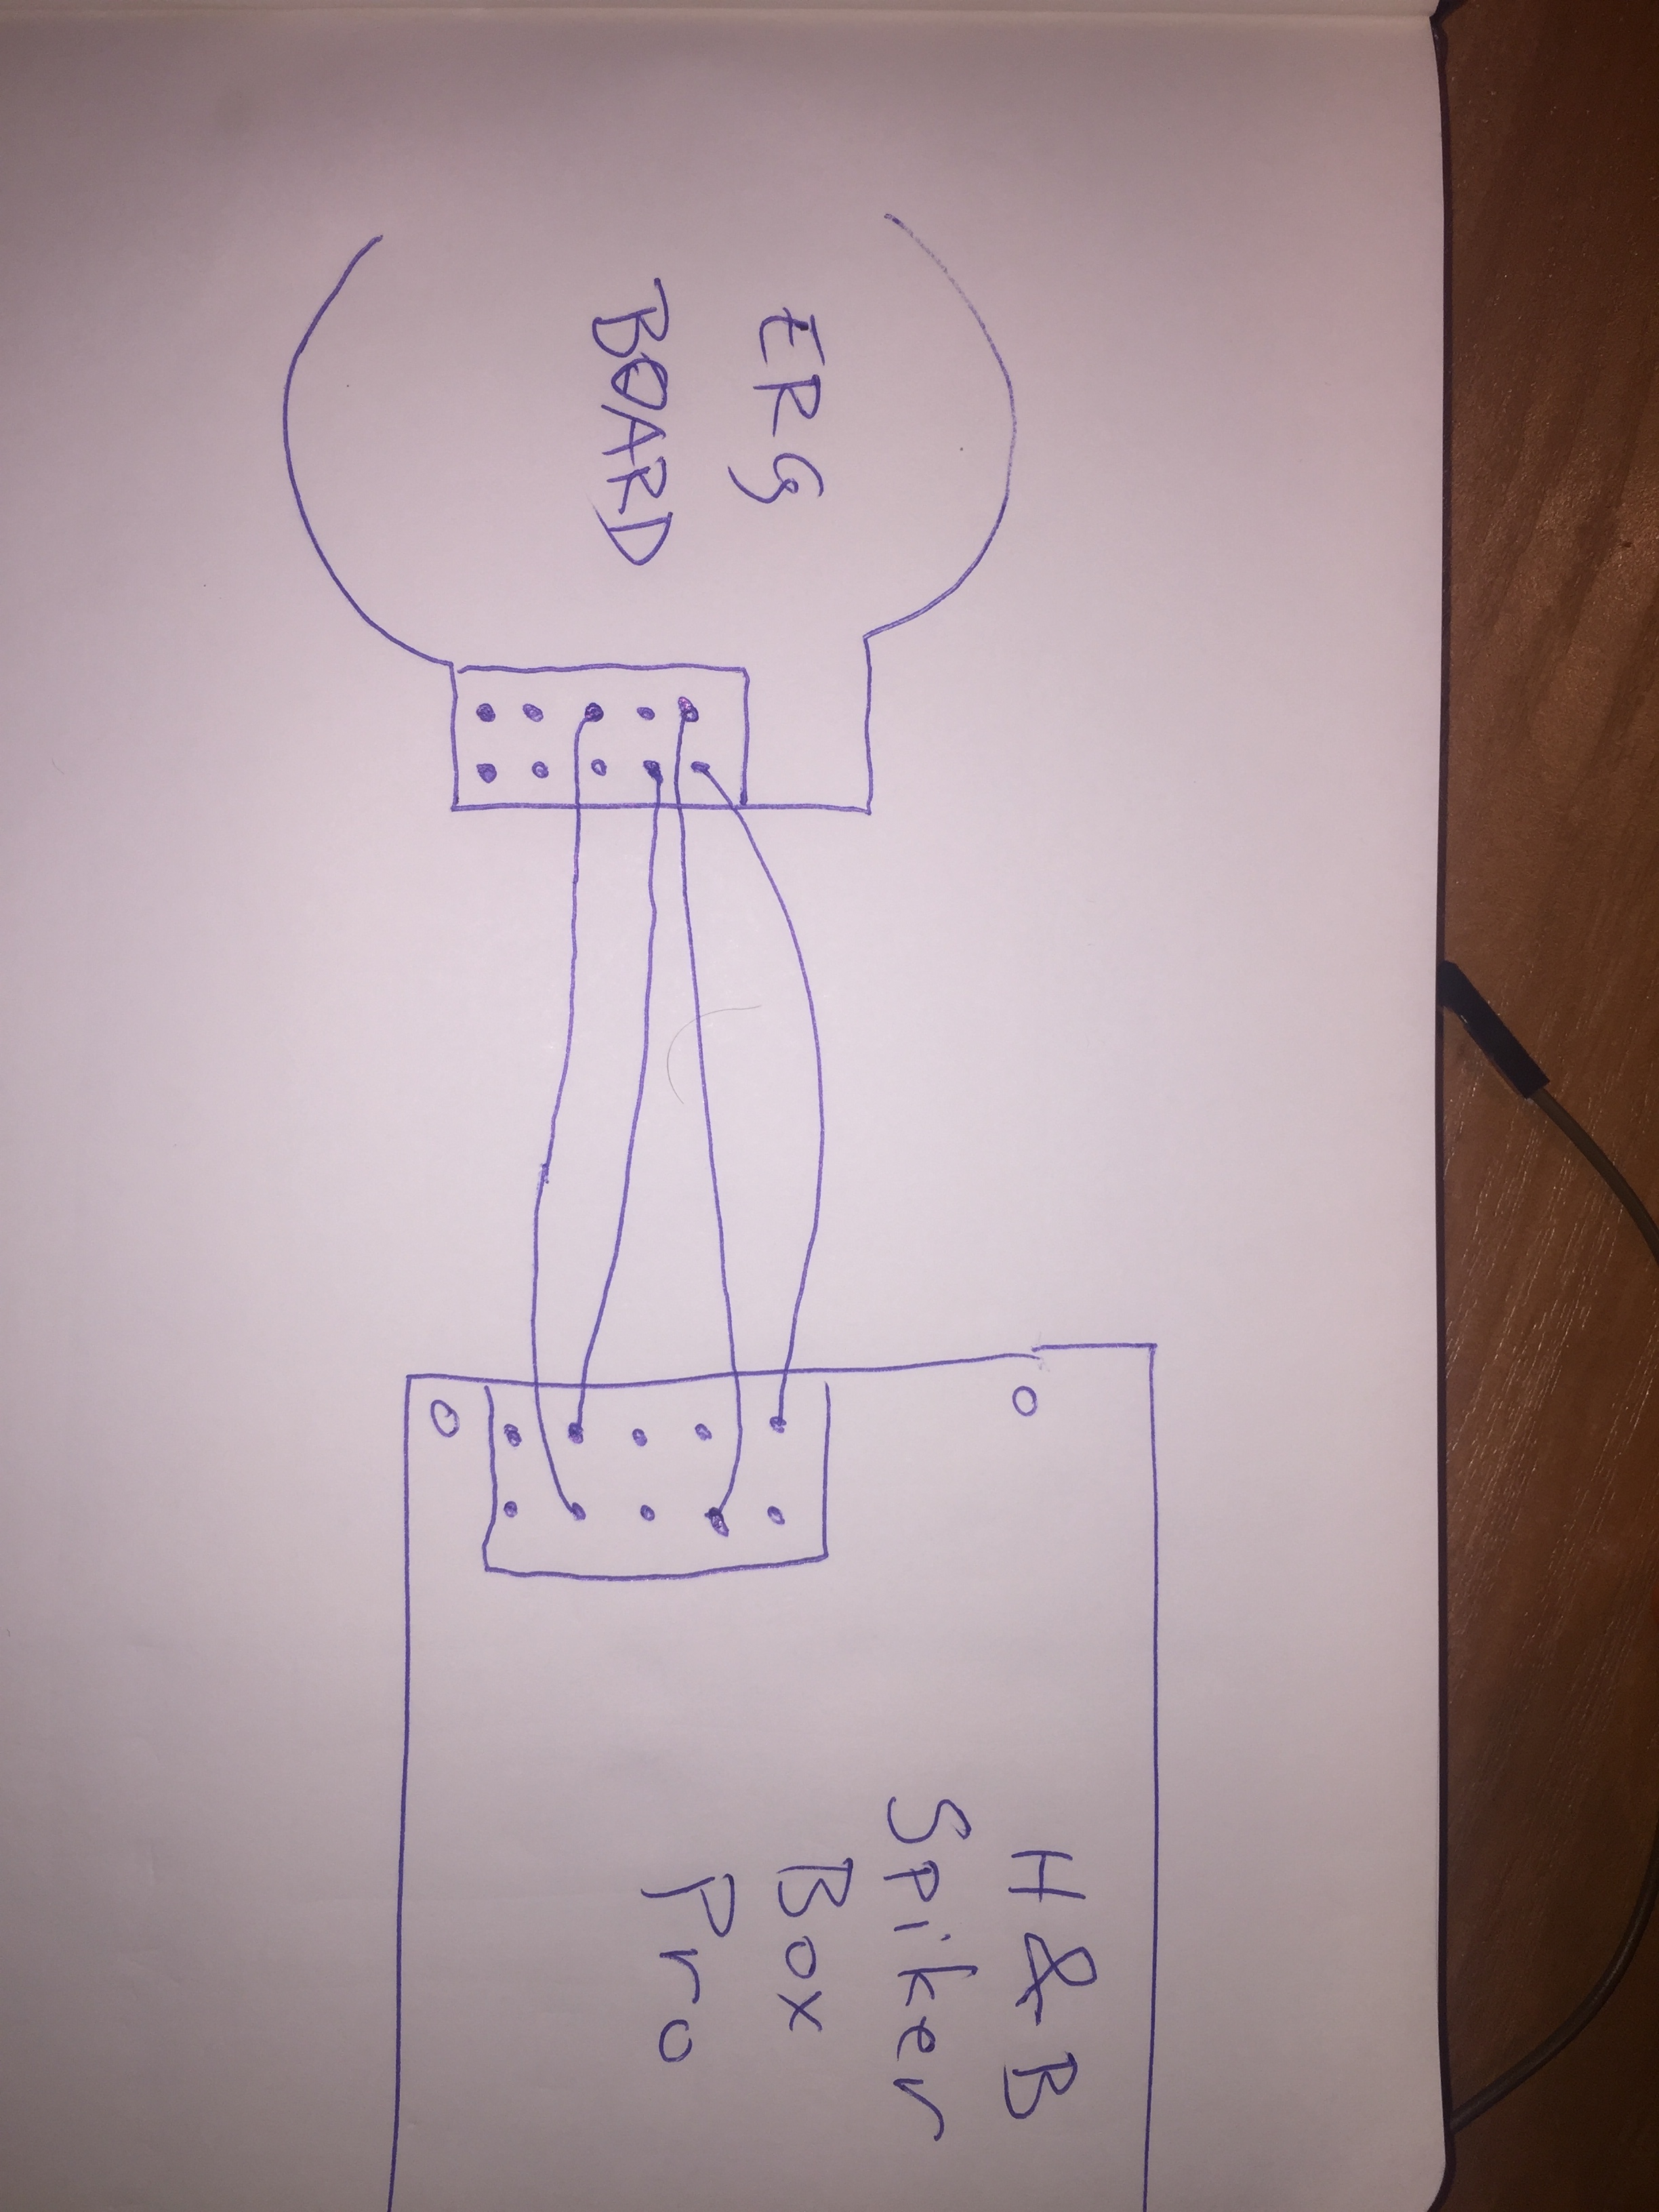 ERG
BOARD
H&B
Spiker
Box
Pro